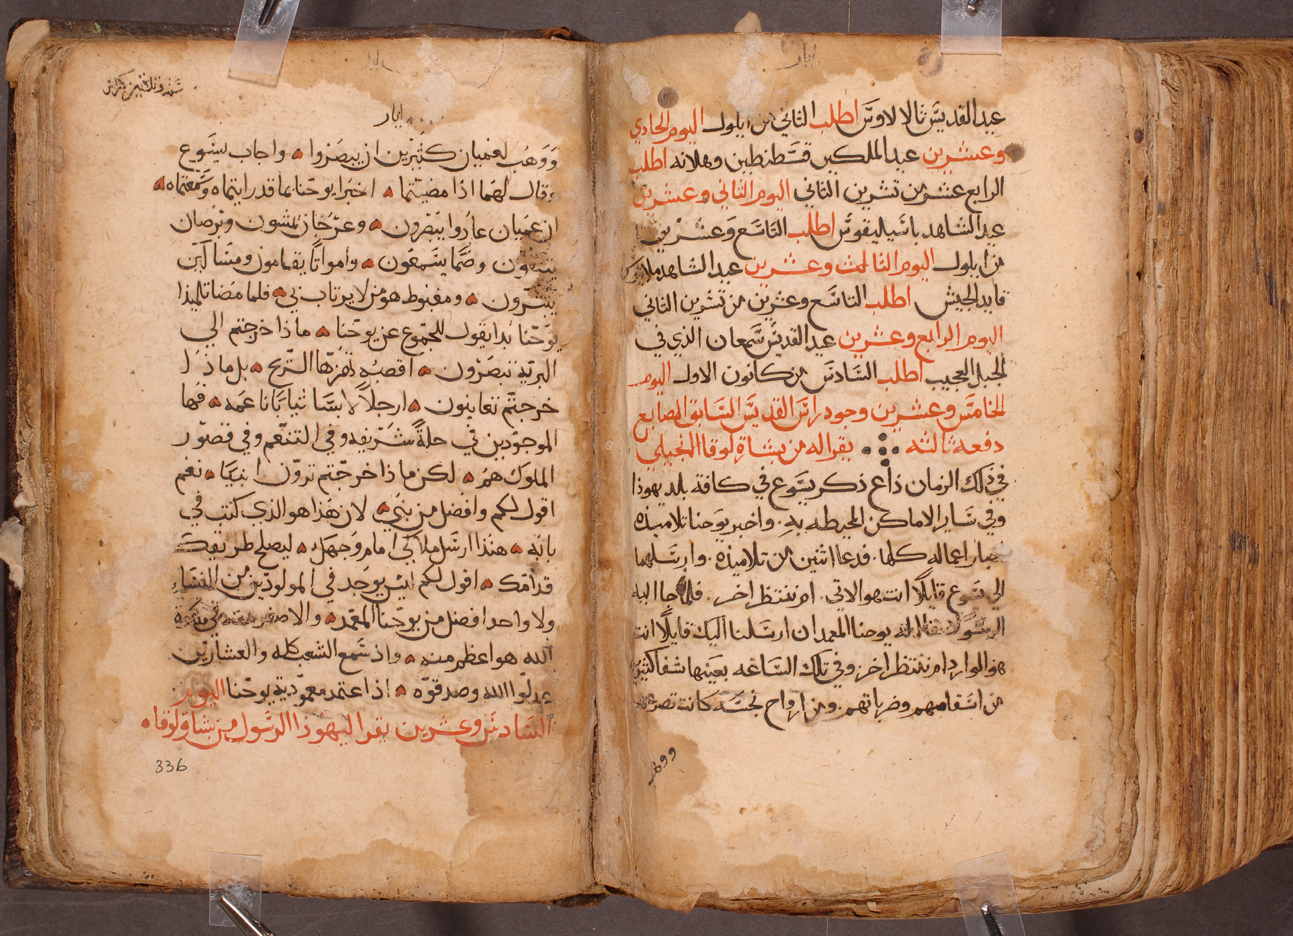 ايار
عيد القديس تالالاوس اطلب الثاني من ايلول اليوم الحادي
وعشرين عيد الملكين قسطنطين وهلانه اطلب
الرابع عشر من تشرين الثاني اليوم الثاني وعشرين
عيد الشاهد باسيليقوس اطلب التاسع وعشرين
من ايلول اليوم الثالث وعشرين عيد الشاهد
قايد الجيش اطلب التاسع وعشرين من تشرين الثاني
اليوم الرابع وعشرين عيد القديس سمعان الذي في
الجبل العجيب اطلب السادس من كانون الاول اليوم
الخامس وعشرين وجود راس القديس السابق الصابع
دفعه ثالثه يقرا له من بشارة لوقا الانجيلي
في ذلك الزمان ذاع ذكر يسوع في كافة بلد يهوذا
وفي ساير الاماكن المحيطه به. واخبر يوحنا تلاميذه
باعماله كلها. فدعا اثنين من تلاميذه. وارسلهما
الى يسوع قايلًا انت هو الاتي. ام ننتظر اخر. فلما جا اليه
يوحنا المعمدان ارسلنا اليك قايلًا انت
هو الوارد ام ننتظر اخر وفي تلك الساعه بعينها شفا كثير
من اسقامهم وضرباتهم. ومن ارواح نجسه كانت
ووهب
ايار
ووهب لعميان كثيرين ان يبصروا واجاب يسوع
وقال لهما اذا مضيتما اخبرا يوحنا بما قد رايتماه وسمعتماه
ان عميان عادوا يبصرون وعرجًا يمشون وبرصان
ينتقون وصمًا يسمعون وامواتًا يقامون ومساكين
يبشرون ومغبوط هو من لا يرتاب بي فلما مضا تلميذا
يوحنا بدا يقول للجموع عن يوحنا ماذا خرجتم الى
البرية تبصرون اقصبه تهزها الريح بل ماذا
خرجتم تعاينون ارجلًا لابسًا ثيابًا ناعمه فها
الموجودين في حلة شريفه وفي التنعم وفي قصور
الملوك هم لكن ماذا خرجتم ترون انبيًا نعم
اقول لكم وافضل من نبي لان هذا هو الذي كتب في
بانه هنذا ارسل ملاكي امام وجهك ليصلح طريقك
قدامك اقول لكم ليس يوجد في المولودين من النساء
ولا واحد افضل من يوحنا المعمد والاصغر
الله هو اعظم منه واذ سمع الشعب كله والعشارين
عدلوا الله وصدقوه اذ اعتمد معمودية يوحنا اليوم
السادس وعشرين يقرا ليهوذا الرسول من بشارة لوقا
336